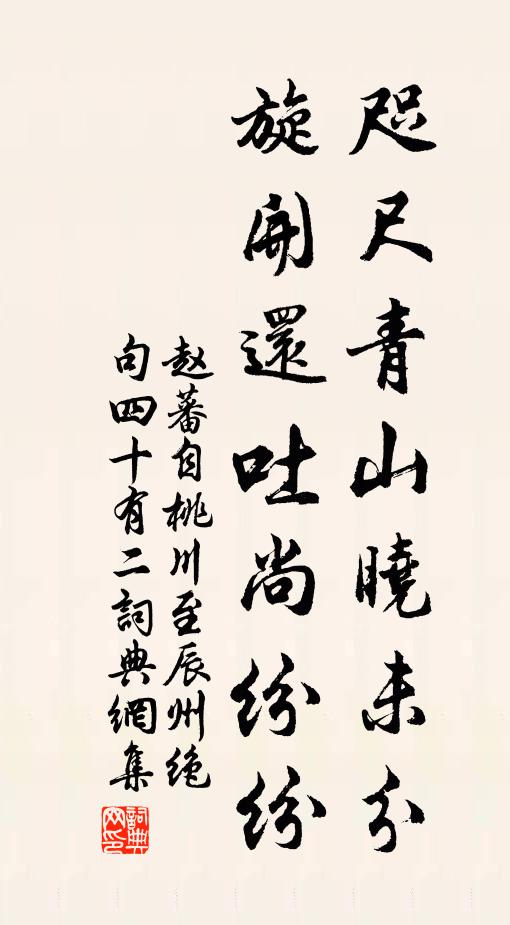 咫尺青山曉未分
旋開還吐尚紛紛
赵蕃自桃川至辰州绝
句四十有二詞典網集
詞典
网印